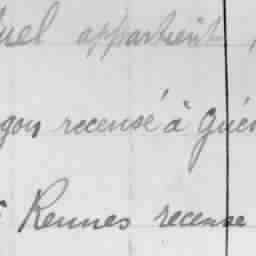 uel appartient
gon recensé à Guér
Rennes recense